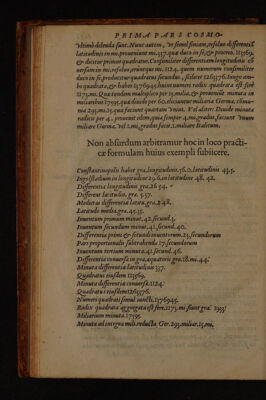 PRIMA PARS COSMO.
vltimò delenda sunt. Nunc autem, vt simul finiam, resoluo differentiã
latitudinis in mi. proueniunt mi. 337. quæ duco in se, & proueni. 113569.
& dicitur primus quadratus. Consimiliter differentiam longitudinis
in mi. resoluo, eruntque mi. 1124. quem numerum consimiliter
duco in se, producitur quadratus secundus, scilicet 1263376. Iungo am-
bo quadratos, & habeo 1376945. huius numeri radix quadrata est ferè
1173. mi. Quæ tandem multiplico per 15. milia, & proueniunt minuta
miliaribus 17595. quæ diuido per 60. decuntur miliaria Germa, cõmu-
nia 293. mi. 15. quæ faciunt quartam vnius. Vel aliter: Diuide minuta
radicis per 4. prouenit idem. quia semper 4. mi. gradus, faciunt vnum
miliare Germa. vel 1. mi, gradus facit 1. miliare Italicum.
Non absurdum arbitramur hoc in loco practi-
cæ formulam huius exempli subiicere.
Constantinopolis habet gra. longitudinis. 56. 0. latitudinis 43. 5.
Ingolstadium in longitudine 29. 6. in latitudine 48. 42.
Differentia longitudinis gra. 26 54.
Different. latitudin. gra. 5. 37.
Medietas differentiæ latitu. gra. 2. 48.
Latitudo media gra. 45. 53.
Inuentum primum minut. 42. secund. 3.
Inuentum secundum minut. 41. secund. 40.
Differentia primi & secundi inuentorum. 23. secundorum
Pars proportionalis subtrahenda 17. secundorum
Inuentum tertium minuta. 41. secund. 46.
Differentia conuersa in gra. æquatoris gra. 18. mi. 44.
Minuta differentiæ latitudinis 337.
Quadratus eiusdem 113569.
Minuta differentiæ conuersæ. 1124.
Quadratus eiusdem 1263376.
Numeri quadrati simul iuncti. 1376945.
Radix quadrata aggregata est fere. 1173. mi. siunt gra.
Miliarium minuta. 17595.
Minuta ad integra mili. reducta Ger. 293. miliar. 15. mi.